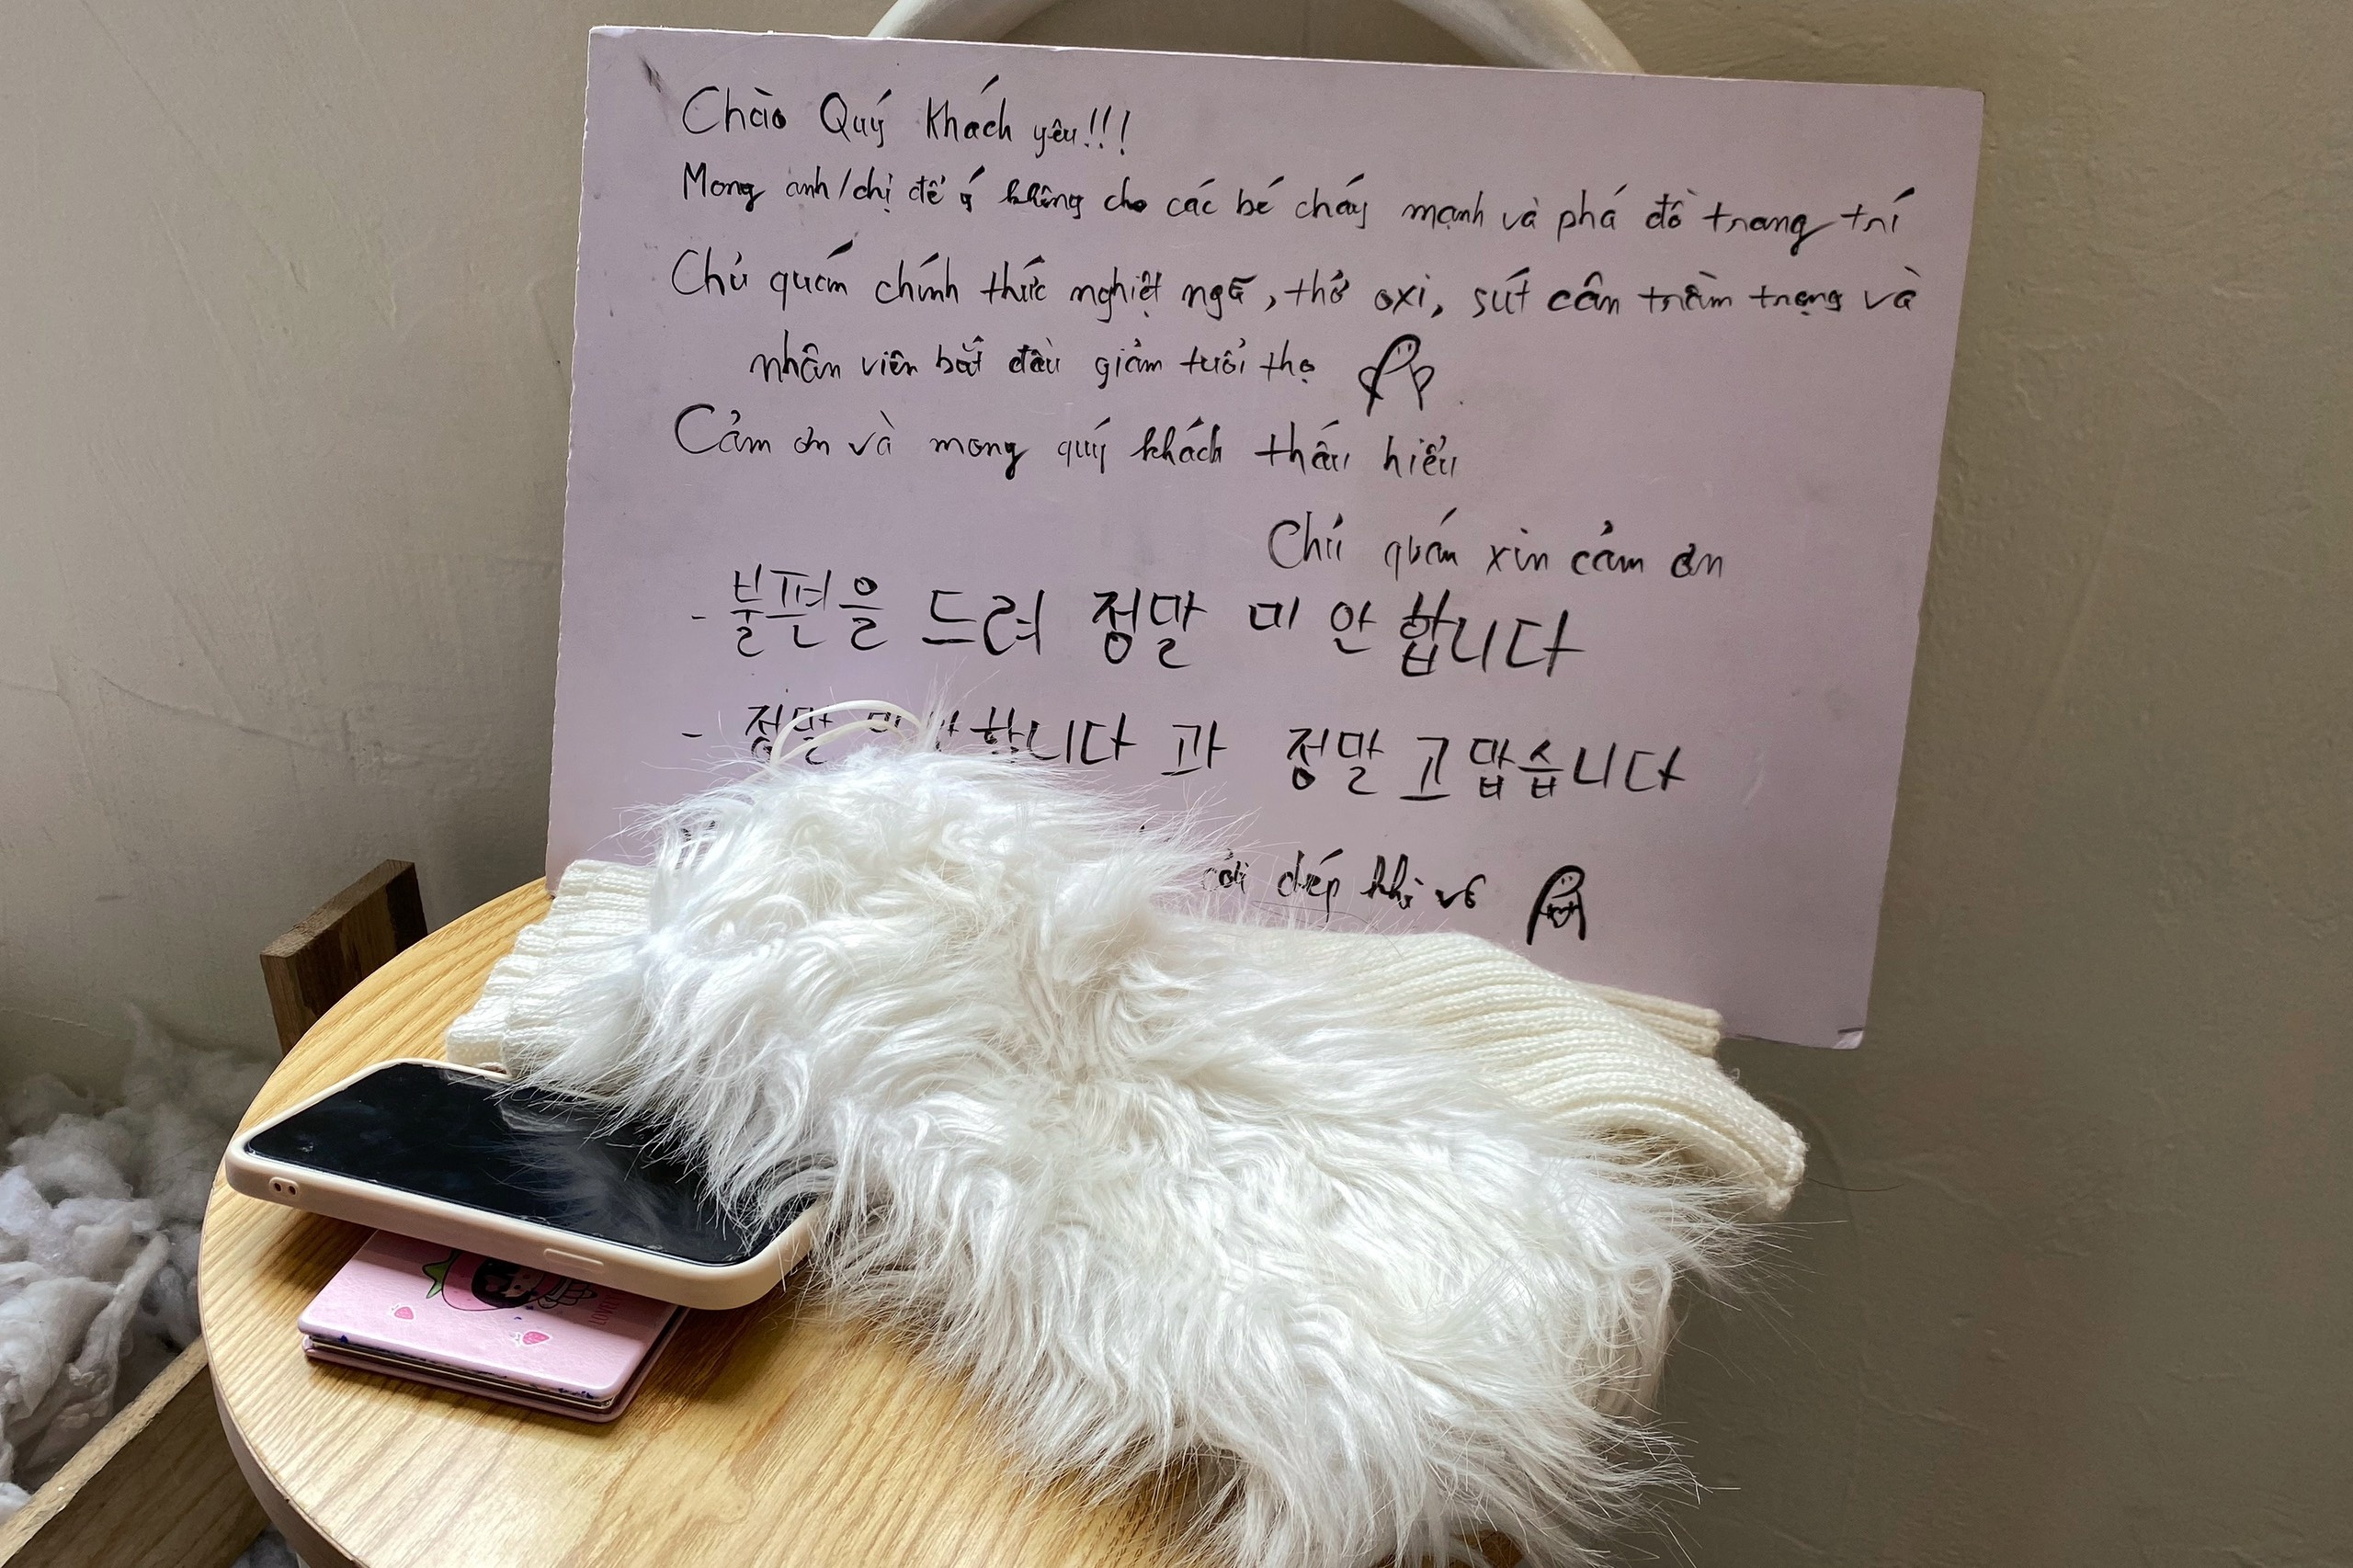 Chào Quý khách yêu!!!
Mong anh/chị để ý không cho các bé chạy mạnh và phá đồ trang trí
Chủ quán chính thức nghiệt ngã, thở oxi, sút cân trầm trọng và
nhân viên bắt đầu giảm tuổi thọ
Cảm ơn và mong quý khách thấu hiểu
Chủ quán xin cảm ơn
- 불편을 드려 정말 미안합니다
- 정말 미안합니다 과 정말 고맙습니다
cởi dép khi vô